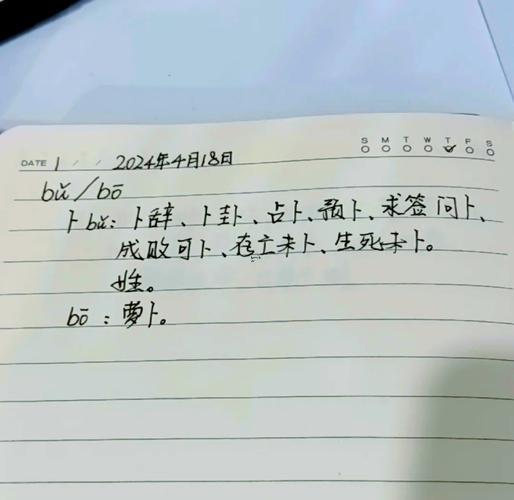 S M T W T F S
DATE 1 / / 2024年4月18日
bǔ/bō
卜bǔ：卜辞、卜卦、占卜、预卜、求签问卜、
成败可卜、存亡未卜、生死未卜。
姓。
bō：萝卜。